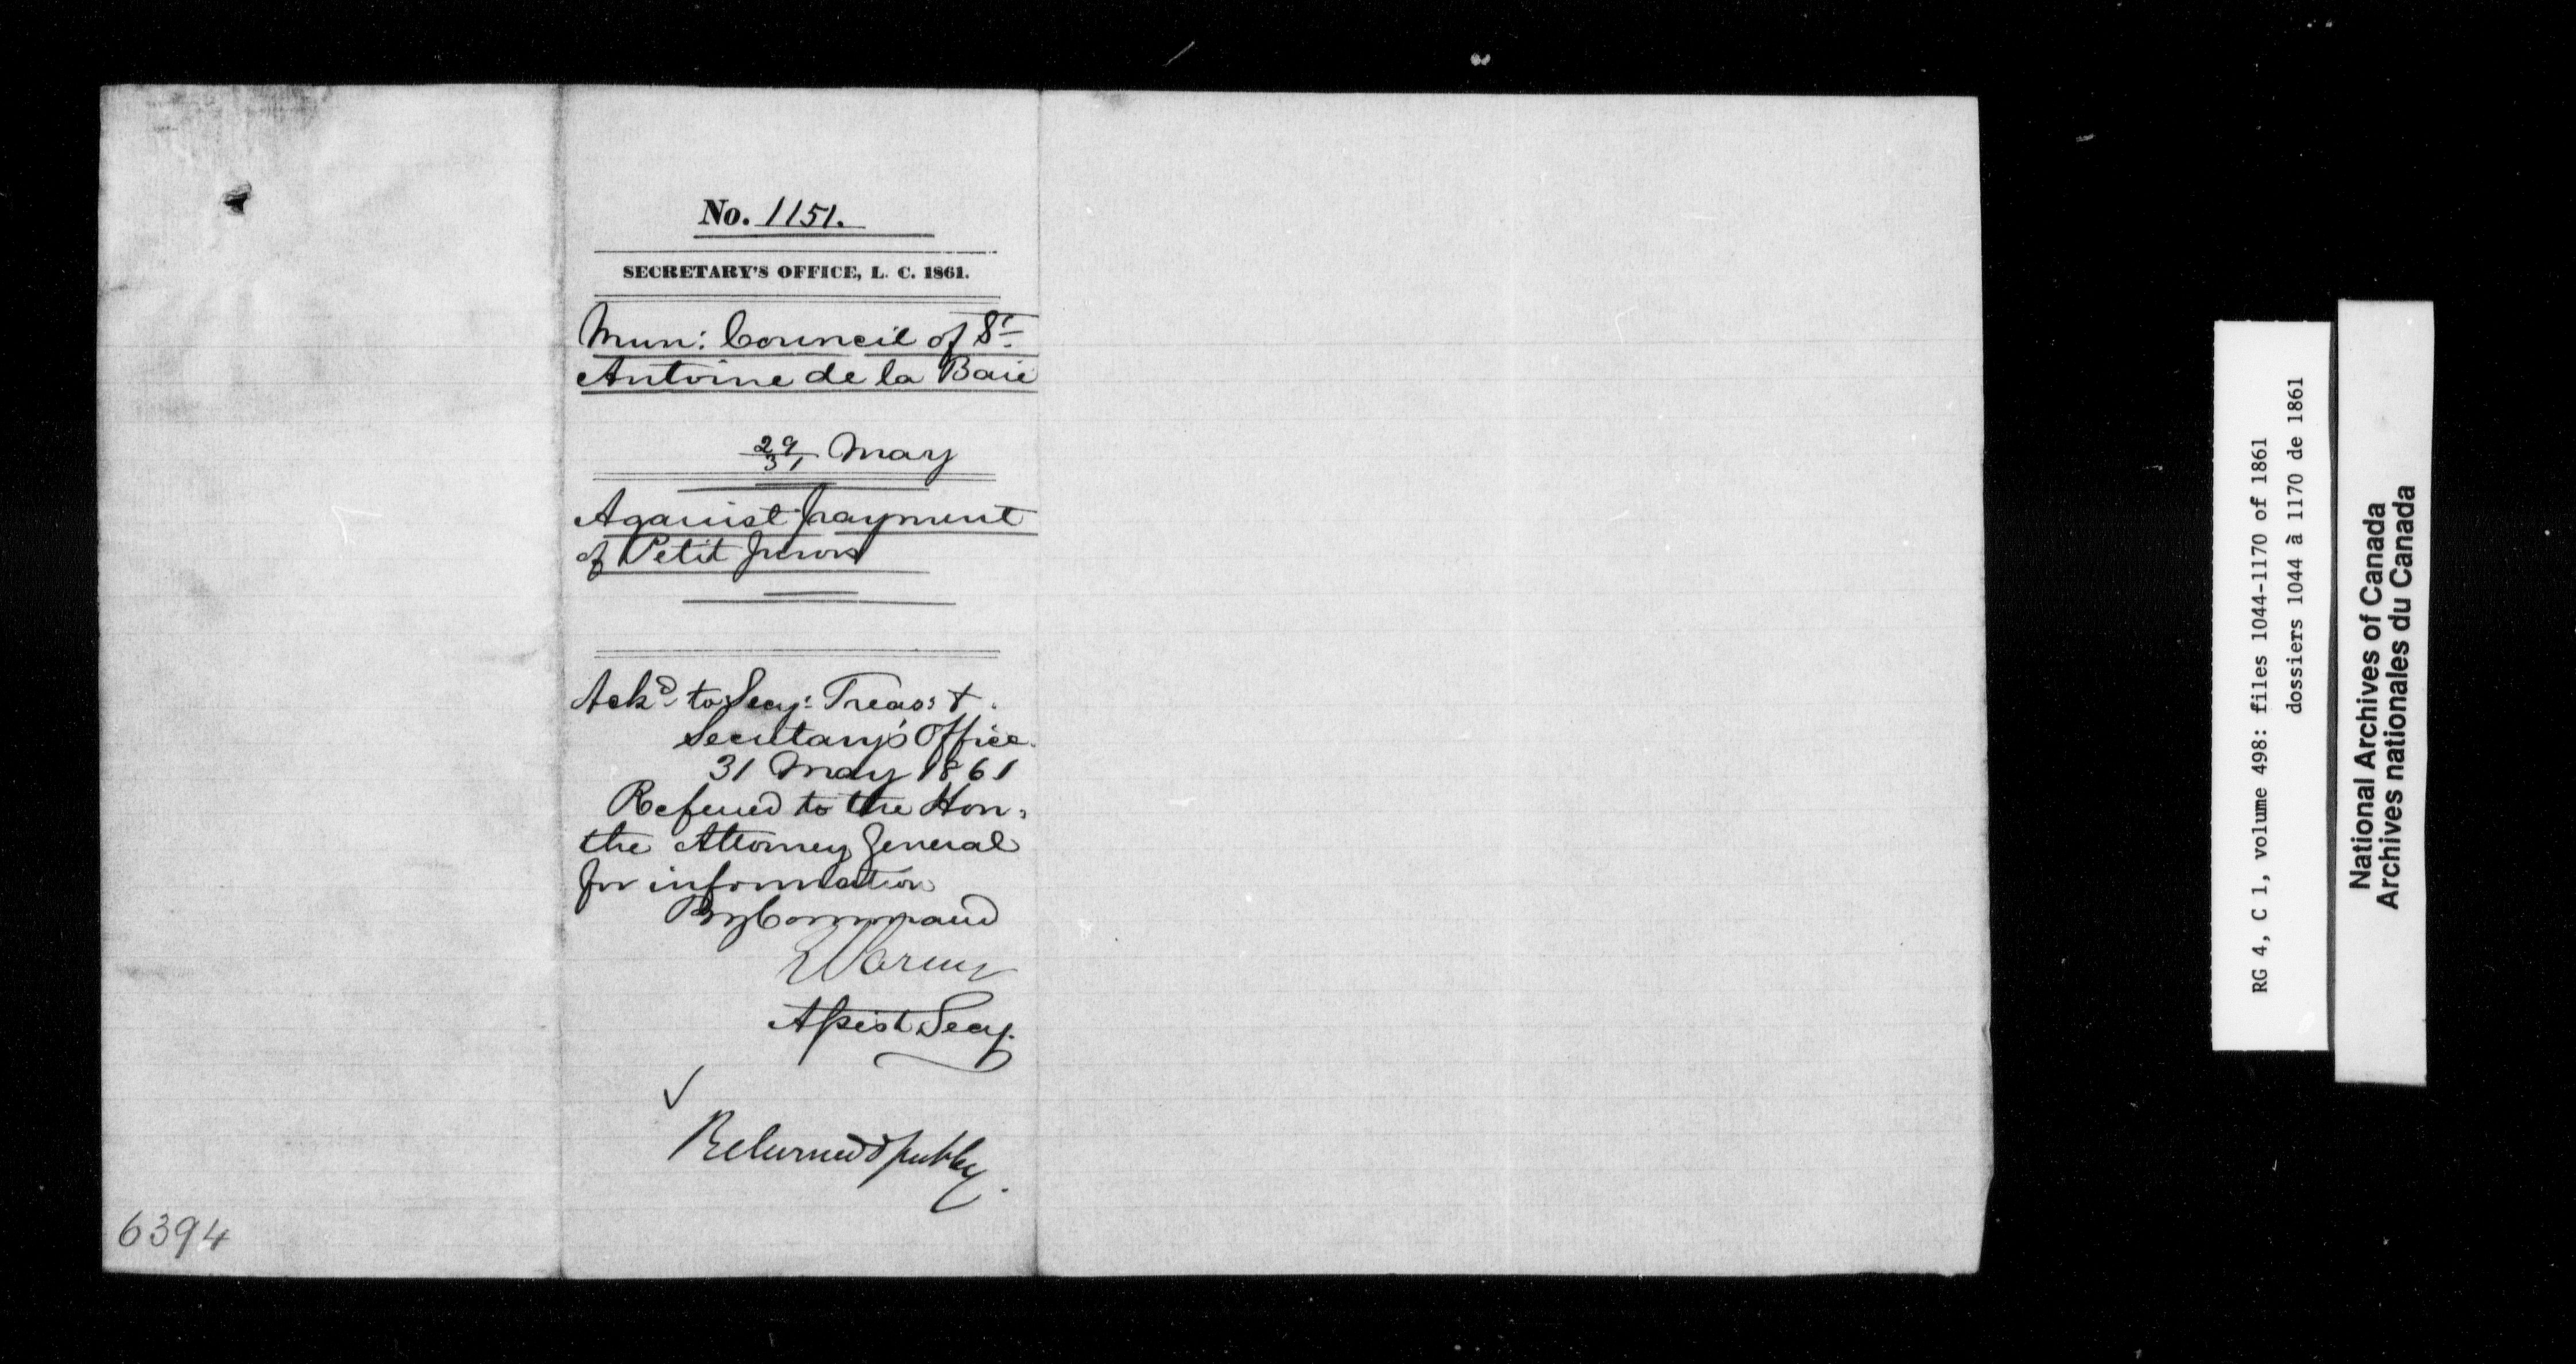 No. 1151.
SECRETARY'S OFFICE, L. C. 1861.
Mun: Council of St
Antoine de la Baie
29/31 May
Against payment
of Petit Jurors
Ackd to Secy: Treas: &
Secretary's Office.
31 May 1861
Referred to the Hon:
the Attorney General
for information
By Command
Assist Secy.
✓
Returned
6394
RG 4, C 1, volume 498: files 1044-1170 of 1861
dossiers 1044 à 1170 de 1861
National Archives of Canada
Archives nationales du Canada